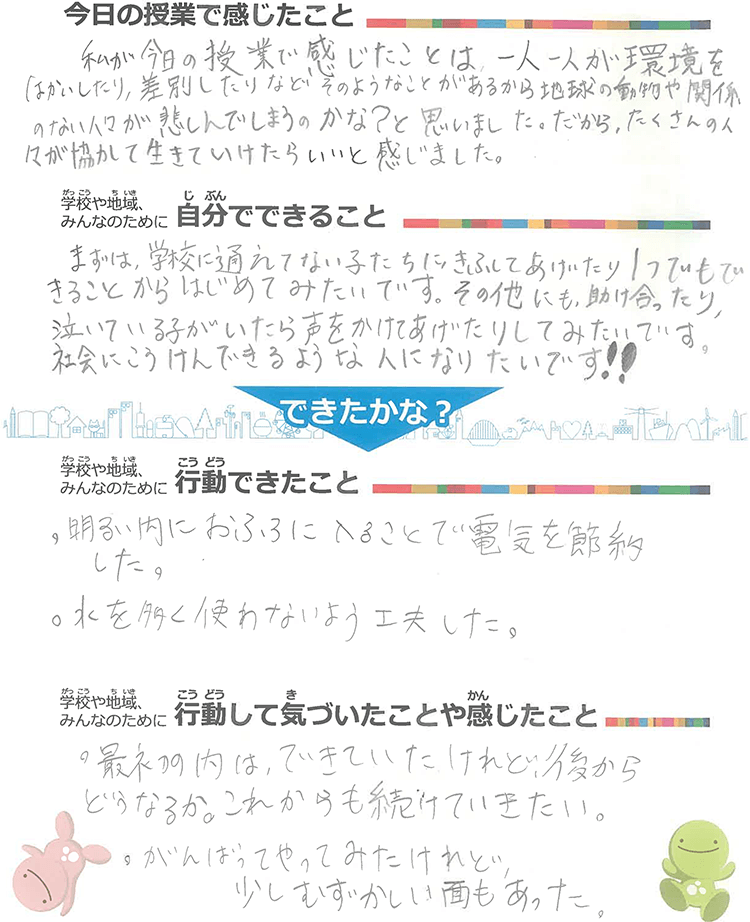 今日の授業で感じたこと
私が今日の授業で感じたことは、一人一人が環境を
はかいしたり、差別したりなどそのようなことがあるから地球の動物や関係
のない人々が悲しんでしまうのかな?と思いました。だから、たくさんの人
々が協力して生きていけたらいいと感じました。
がっこう ちいき
学校や地域、
みんなのために
じ ぶん
自分でできること
まずは、学校に通えてない子たちにきふしてあげたり1つでもで
きることからはじめてみたいです。その他にも、助け合ったり、
泣いている子がいたら声をかけてあげたりしてみたいです。
社会にこうけんできるような人になりたいです!!
できたかな?
がっこう ちいき
学校や地域、
みんなのために
こうどう
行動できたこと
。明るい内におふろに入ることで電気を節約
した。
。水を多く使わないよう工夫した。
がっこう ちいき
学校や地域、
みんなのために
こうどう き かん
行動して気づいたことや感じたこと
。最初の内は、できていたけれど、後から
どうなるか。これからも続けていきたい。
。がんばってやってみたけれど、
少しむずかしい面もあった。